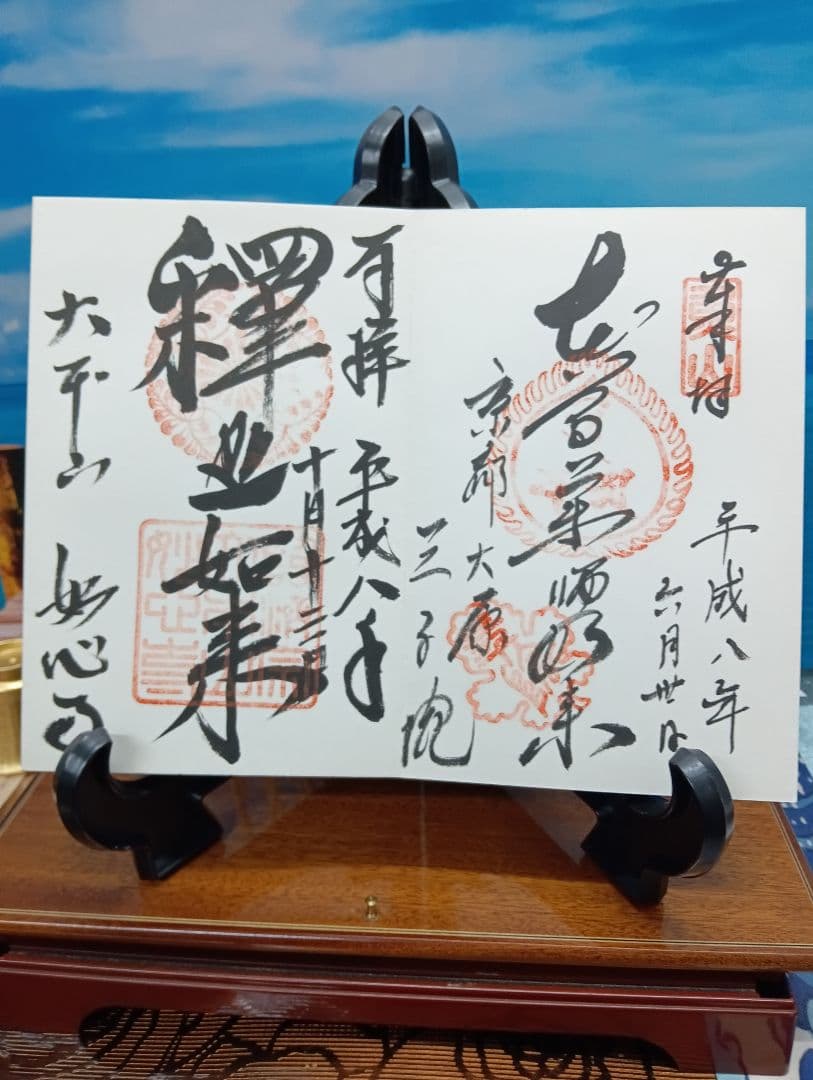 奉拝
平成八年
六月卅日
本尊薬師如来
京都大原
三千院
奉拝
平成八年
十月十三日
釋迦如来
太平山